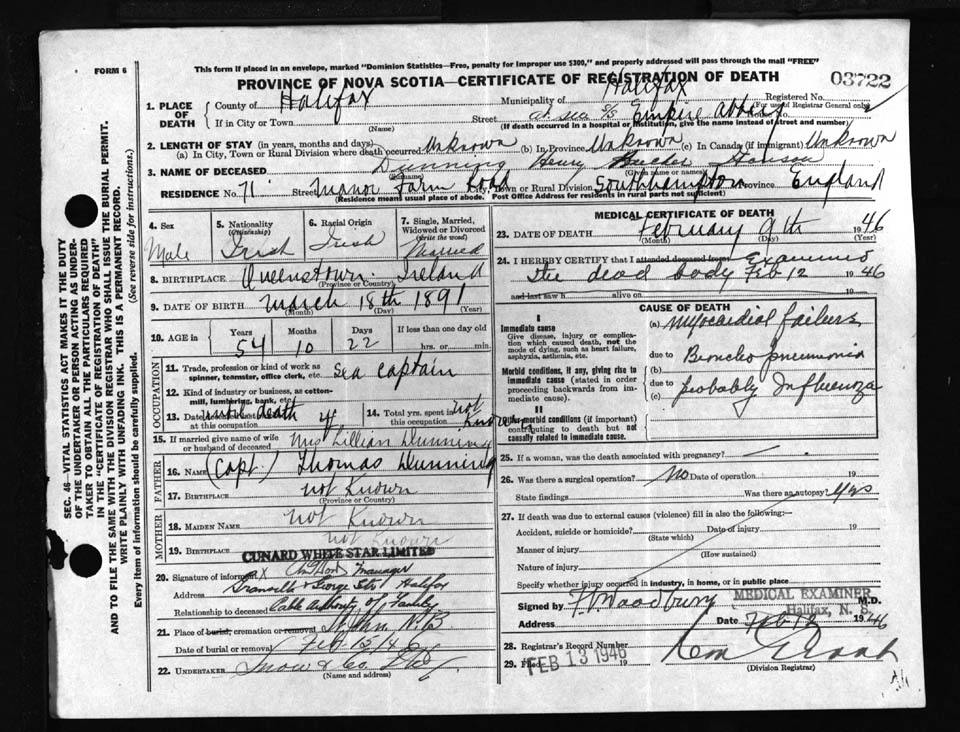 FORM 6
This form if placed in an envelope, marked "Dominion Statistics—Free, penalty for improper use $300," and properly addressed will pass through the mail "FREE"
PROVINCE OF NOVA SCOTIA—CERTIFICATE OF REGISTRATION OF DEATH
03722
1. PLACE OF DEATH
County of Halifax
Municipality of Halifax
Registered No.
(For use of Registrar General only)
If in City or Town
(Name)
Street at sea S/S Empire Abbey
(If death occurred in a hospital or institution, give the name instead of street and number)
2. LENGTH OF STAY (in years, months and days)
(a) In City, Town or Rural Division where death occurred Unknown (b) In Province Unknown (c) In Canada (if immigrant) Unknown
3. NAME OF DECEASED Dunning Henry
(Surname) (Given name or names)
RESIDENCE No. 71 Street Manor Farm Road City, Town or Rural Division Southhampton Province England
(Residence means usual place of abode. Post Office Address for residents in rural parts not sufficient)
4. Sex
Male
5. Nationality
(Citizenship)
Irish
6. Racial Origin
Irish
7. Single, Married, Widowed or Divorced
(Write the word)
Married
8. BIRTHPLACE Queenstown. Ireland
(Province or Country)
9. DATE OF BIRTH March 18th 1891
(Month) (Day) (Year)
10. AGE in
Years 54
Months 10
Days 22
If less than one day old
hrs. or min.
OCCUPATION
11. Trade, profession or kind of work as spinner, teamster, office clerk, etc. Sea Captain
12. Kind of industry or business, as cotton-mill, lumbering, bank, etc.
13. Date deceased last worked at this occupation until death
14. Total yrs. spent in this occupation not known
15. If married give name of wife or husband of deceased Mrs Lillian Dunning
FATHER
16. Name (Capt.) Thomas Dunning
17. BIRTHPLACE not Known
(Province or Country)
MOTHER
18. MAIDEN NAME not Known
19. BIRTHPLACE not Known
CUNARD WHITE STAR LIMITED
20. Signature of informant X Manager
Address Granville & George Sts Halifax
Relationship to deceased Cable Authority of Family
21. Place of burial, cremation or removal St John N.B.
Date of burial or removal Feb 13/46
22. UNDERTAKER Snow & Co. Ltd
(Name and address)
MEDICAL CERTIFICATE OF DEATH
23. DATE OF DEATH February 9th 1946
(Month) (Day)
24. I HEREBY CERTIFY that I attended deceased from Examined
the dead body Feb 12 1946
and last saw h alive on 19
CAUSE OF DEATH
I
Immediate cause
Give disease, injury or complication which caused death, not the mode of dying, such as heart failure, asphyxia, asthenia, etc.
(a) Myocardial failure
due to
Morbid conditions, if any, giving rise to immediate cause (stated in order proceeding backwards from immediate cause).
(b) Broncho pneumonia
due to
(c) probably Influenza
II
Other morbid conditions (if important) contributing to death but not causally related to immediate cause.
25. If a woman, was the death associated with pregnancy?
26. Was there a surgical operation? No Date of operation 19
State findings Was there an autopsy? Yes
27. If death was due to external causes (violence) fill in also the following:—
Accident, suicide or homicide? Date of injury 19
(State which)
Manner of injury
(How sustained)
Nature of injury
Specify whether injury occurred in industry, in home, or in public place
Signed by Woodbury M.D.
MEDICAL EXAMINER
Halifax, N. S.
Address Date Feb 12 1946
28. Registrar's Record Number
29. Filed FEB 13 1946 19
(Division Registrar)
SEC. 46 VITAL STATISTICS ACT MAKES IT THE DUTY OF THE UNDERTAKER OR PERSON ACTING AS UNDERTAKER TO OBTAIN ALL THE PARTICULARS REQUIRED IN THE "CERTIFICATE OF REGISTRATION OF DEATH" AND TO FILE THE SAME WITH THE DIVISION REGISTRAR WHO SHALL ISSUE THE BURIAL PERMIT.
WRITE PLAINLY WITH UNFADING INK. THIS IS A PERMANENT RECORD.
Every item of information should be carefully supplied. (See reverse side for instructions.)